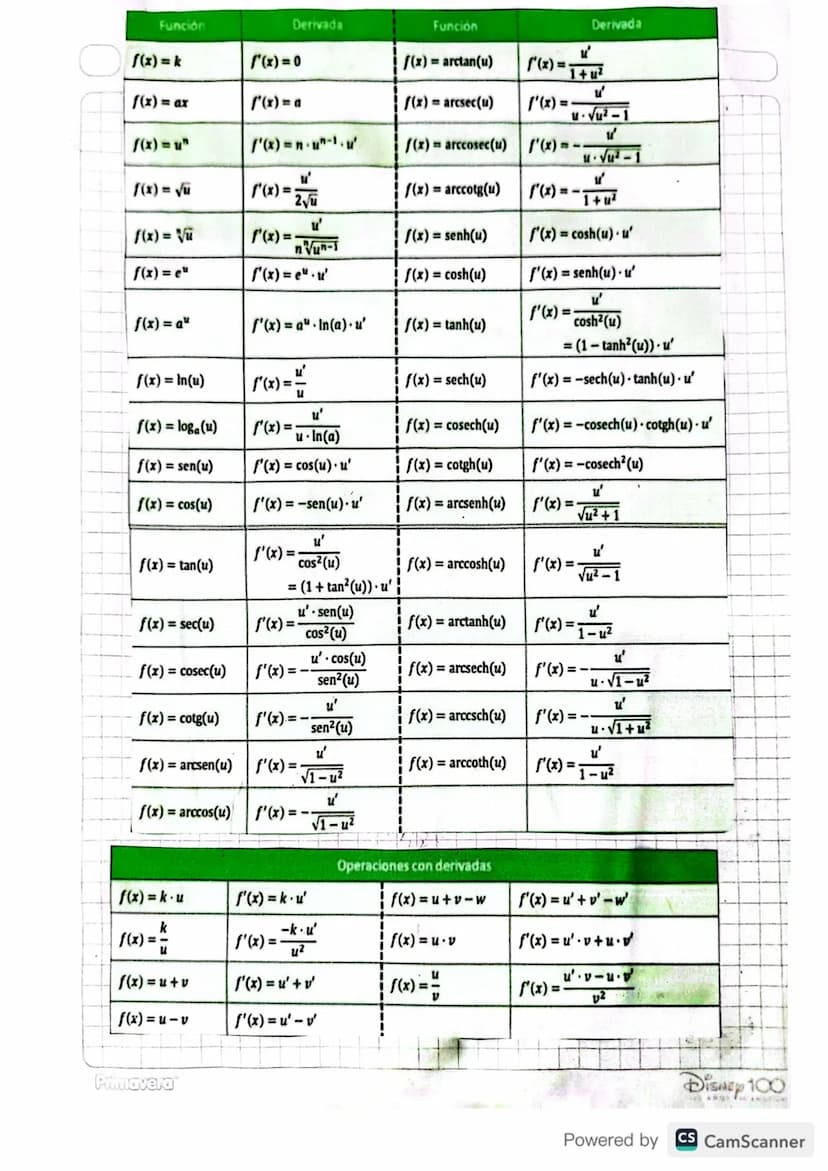 Función Derivada Función Derivada
f(x) = k f'(x) = 0 f(x) = arctan(u) f'(x) = u' / 1 + u²
f(x) = ax f'(x) = a f(x) = arcsec(u) f'(x) = u' / u · √u² − 1
f(x) = uⁿ f'(x) = n · uⁿ⁻¹ · u' f(x) = arccosec(u) f'(x) = − u' / u · √u² − 1
f(x) = √u f'(x) = u' / 2√u f(x) = arccotg(u) f'(x) = − u' / 1 + u²
f(x) = ⁿ√u f'(x) = u' / n ⁿ√uⁿ⁻¹ f(x) = senh(u) f'(x) = cosh(u) · u'
f(x) = eᵘ f'(x) = eᵘ · u' f(x) = cosh(u) f'(x) = senh(u) · u'
f(x) = aᵘ f'(x) = aᵘ · ln(a) · u' f(x) = tanh(u) f'(x) = u' / cosh²(u)
= (1 − tanh²(u)) · u'
f(x) = ln(u) f'(x) = u' / u f(x) = sech(u) f'(x) = −sech(u) · tanh(u) · u'
f(x) = logₐ(u) f'(x) = u' / u · ln(a) f(x) = cosech(u) f'(x) = −cosech(u) · cotgh(u) · u'
f(x) = sen(u) f'(x) = cos(u) · u' f(x) = cotgh(u) f'(x) = −cosech²(u)
f(x) = cos(u) f'(x) = −sen(u) · u' f(x) = arcsenh(u) f'(x) = u' / √u² + 1
f(x) = tan(u) f'(x) = u' / cos²(u) f(x) = arccosh(u) f'(x) = u' / √u² − 1
= (1 + tan²(u)) · u'
f(x) = sec(u) f'(x) = u' · sen(u) / cos²(u) f(x) = arctanh(u) f'(x) = u' / 1 − u²
f(x) = cosec(u) f'(x) = − u' · cos(u) / sen²(u) f(x) = arcsech(u) f'(x) = − u' / u · √1 − u²
f(x) = cotg(u) f'(x) = − u' / sen²(u) f(x) = arccsch(u) f'(x) = − u' / u · √1 + u²
f(x) = arcsen(u) f'(x) = u' / √1 − u² f(x) = arccoth(u) f'(x) = u' / 1 − u²
f(x) = arccos(u) f'(x) = − u' / √1 − u²
Operaciones con derivadas
f(x) = k · u f'(x) = k · u' f(x) = u + v − w f'(x) = u' + v' − w'
f(x) = k / u f'(x) = −k · u' / u² f(x) = u · v f'(x) = u' · v + u · v'
f(x) = u + v f'(x) = u' + v' f(x) = u / v f'(x) = u' · v − u · v' / v²
f(x) = u − v f'(x) = u' − v'
Primavera
Disney 100
Powered by CS CamScanner